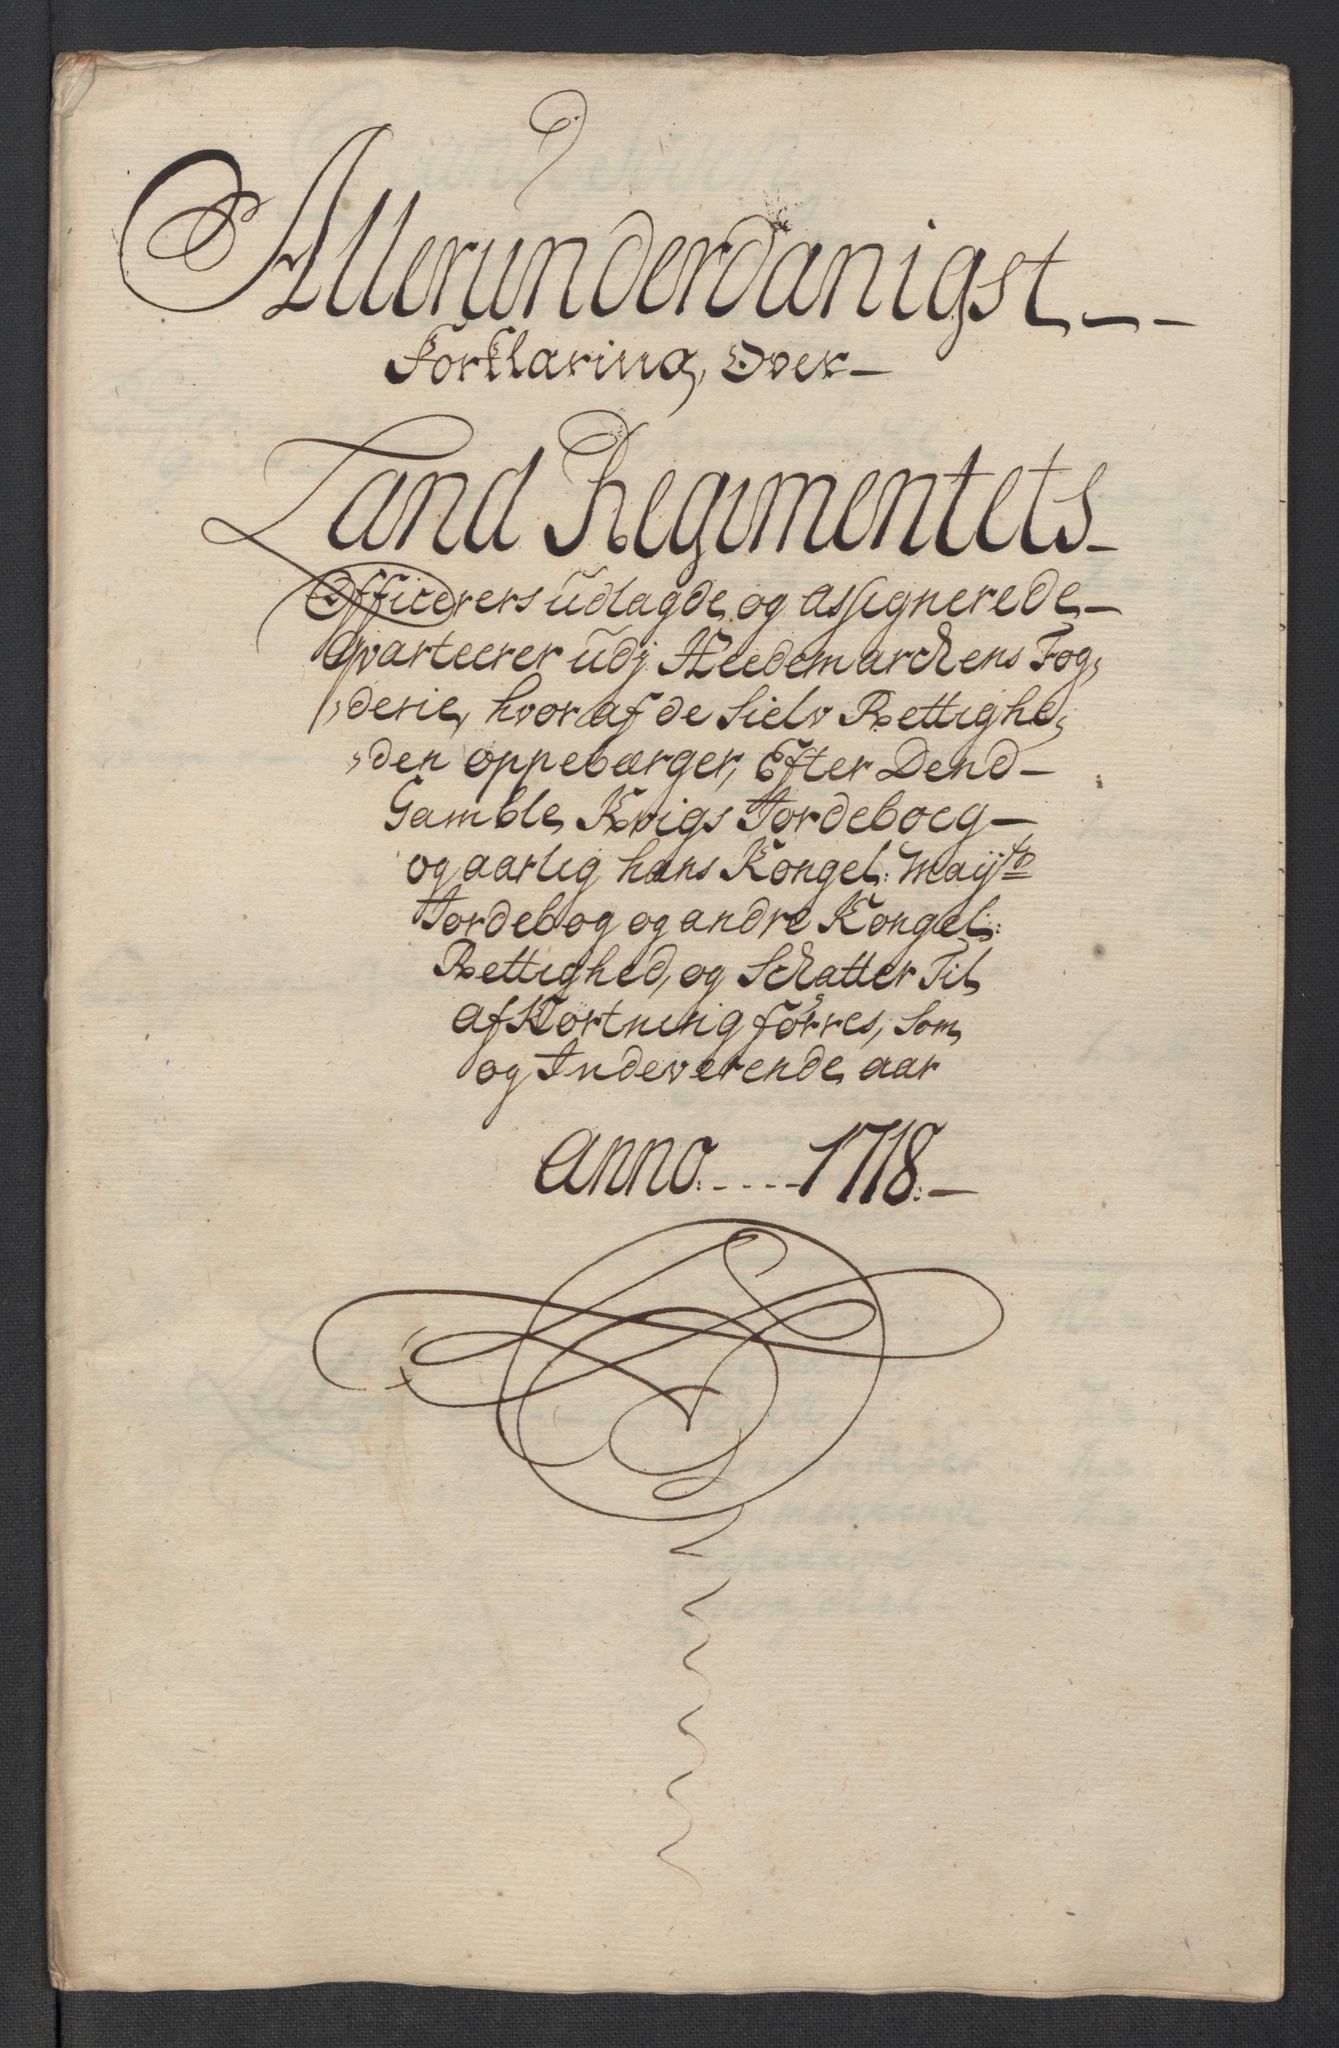 Allerunderdanigst - -
Forklaring, Over -
Land Regimentets -
Officerers udlagde og assignerede -
qvarteerer udj Heedemarckens Fog,
,derie, hvoraf de Sielv Rettighe,
,den oppebærger, Efter Dend -
Gamble Krigs Jordeboeg -
og aarlig hans Kongel: Mayts
Jordebog og andre Kongel:
Rettighed, og Schatter Til
afKortning förres, Som
og Indeverende aar
Anno: - - - - 1718: -